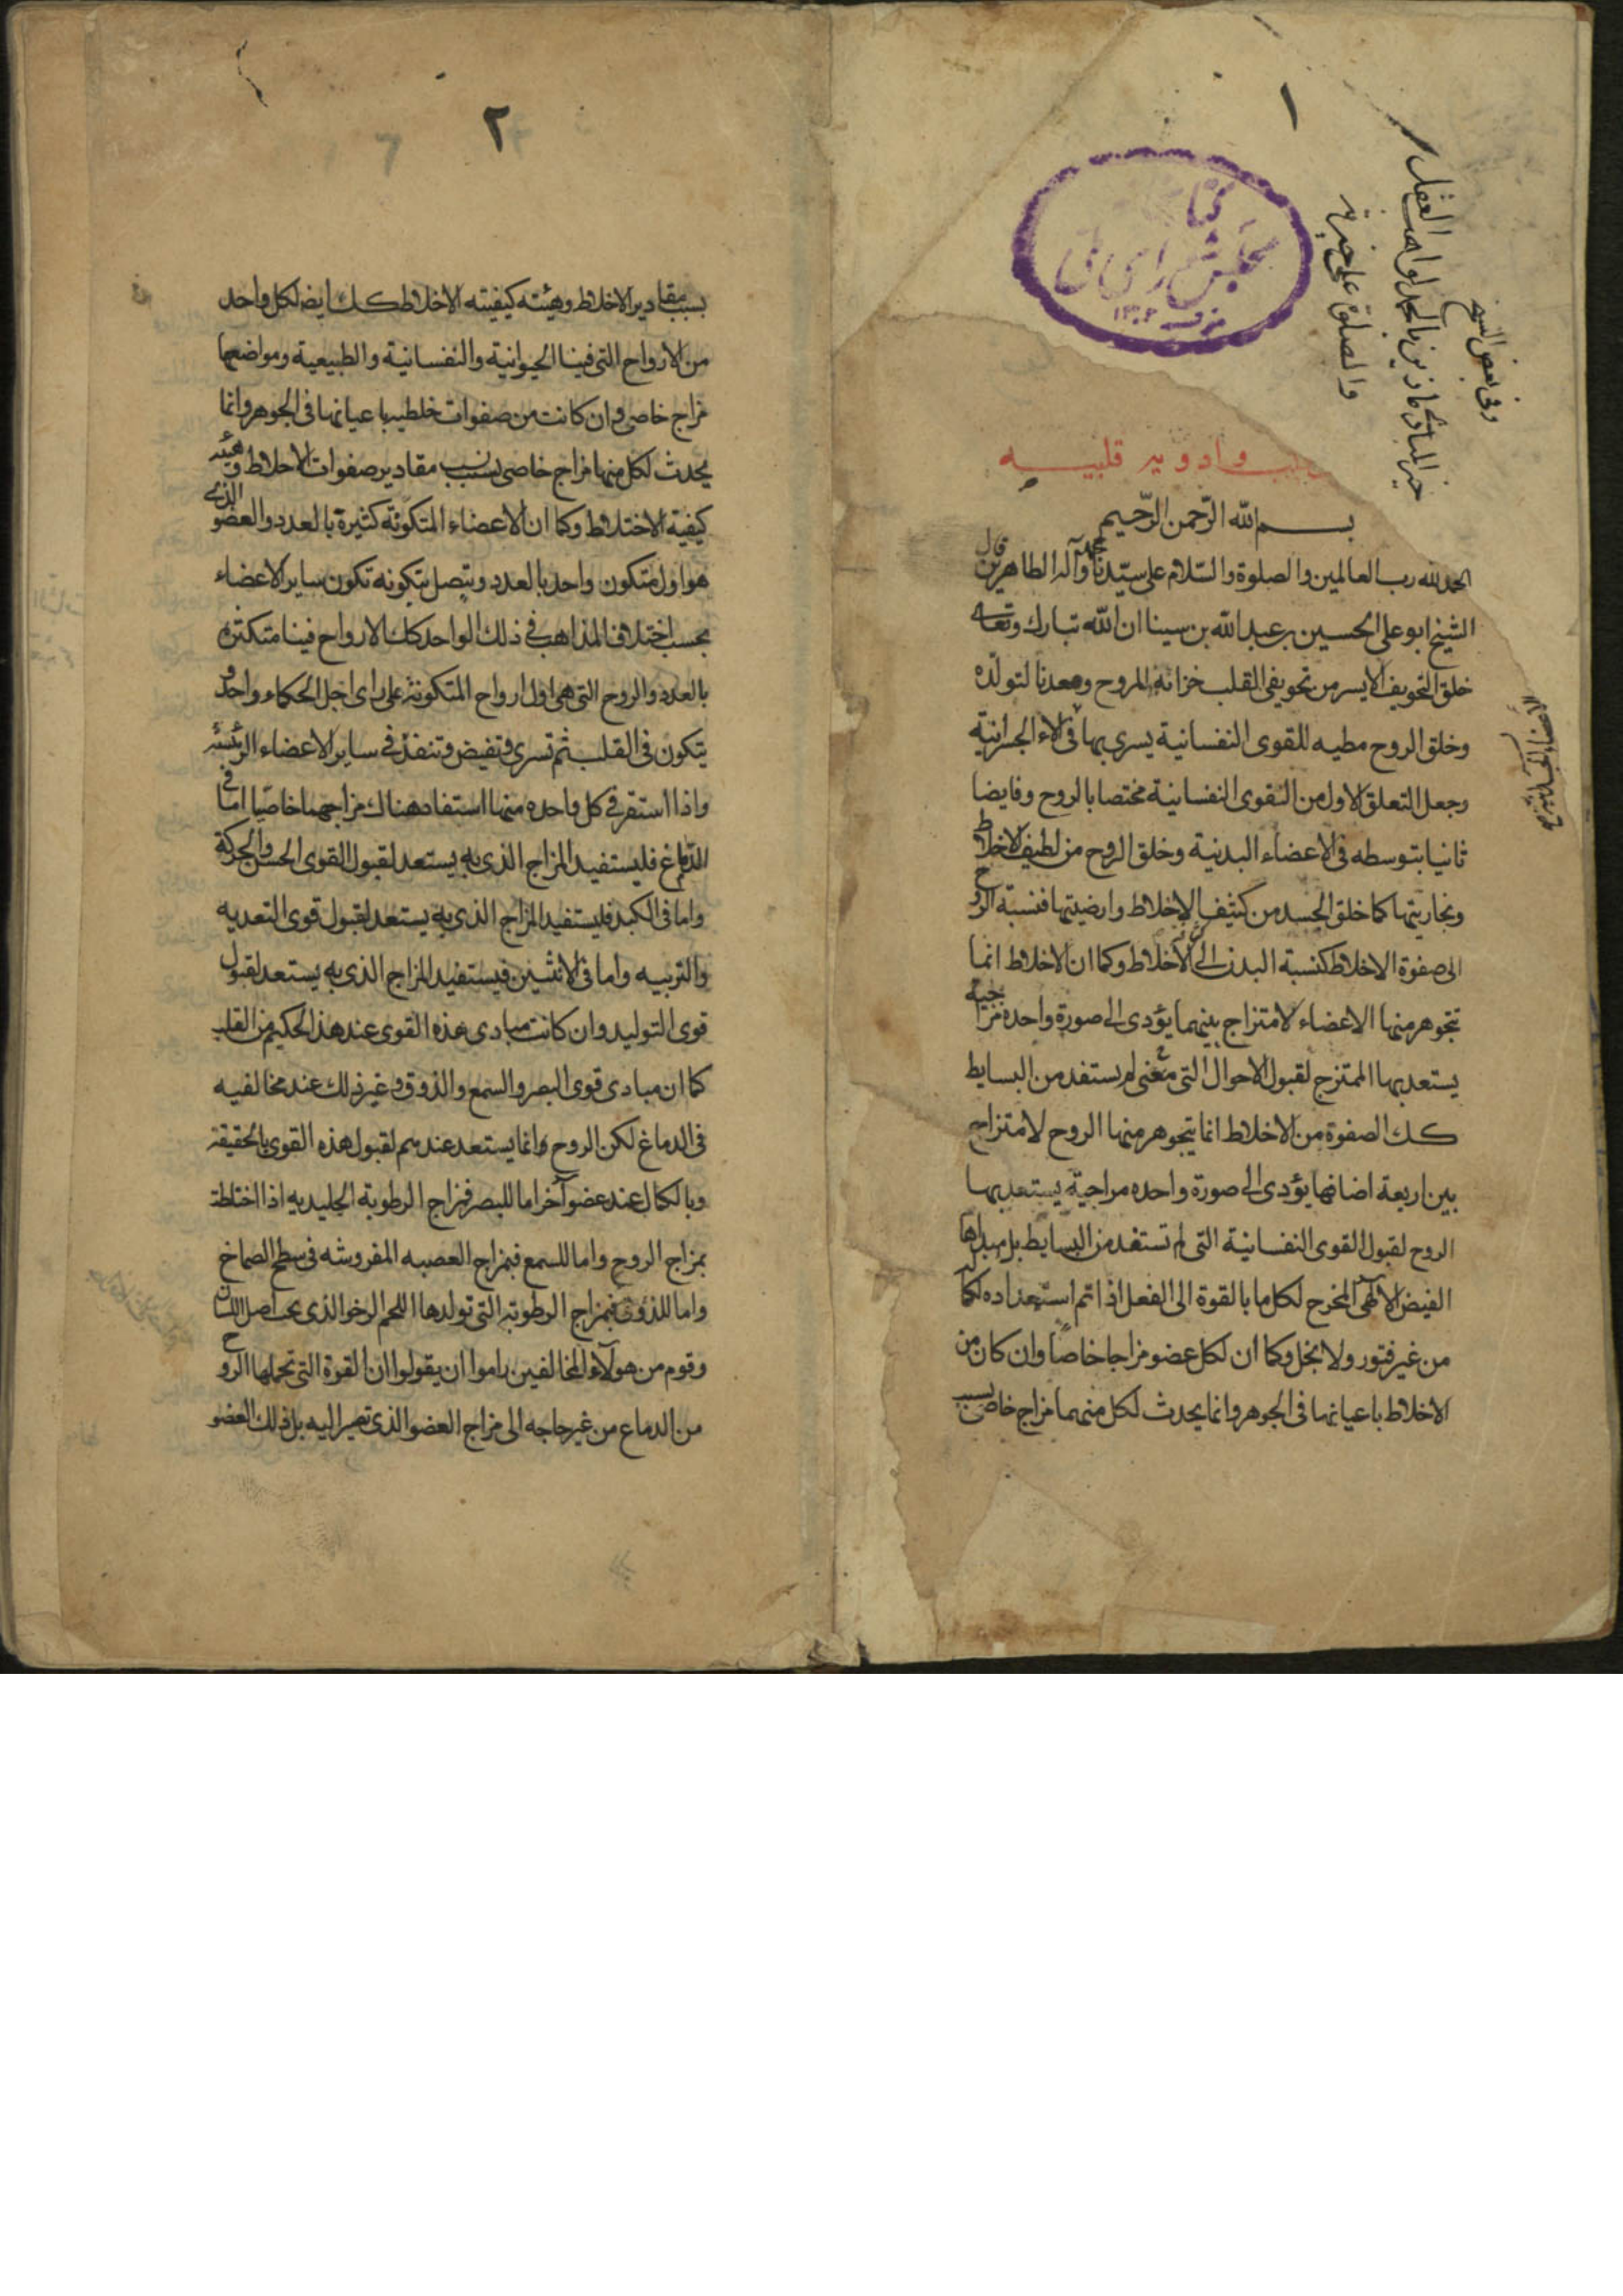 ١
وفى بعض النسخ
خير المبادى ما زين بالحمد لواهب العقل
والصلوة على خير
كتابخانه
مجلس شورای ملی
١٣٠٢
وادويه قلبيه
بسم الله الرحمن الرحيم
الحمد لله رب العالمين والصلوة والسلام على سيدنا محمد وآله الطاهرين قال
الشيخ ابو على الحسين بن عبد الله بن سينا ان الله تبارك وتعالى
خلق التجويف الايسر من تجويفى القلب خزانة للروح ومعدنا لتولده
وخلق الروح مطيه للقوى النفسانية يسرى بها فى الاعضاء الجسرانية
وجعل التعلق الاول من القوى النفسانية مختصا بالروح وفايضا
ثانيا بتوسطه فى الاعضاء البدنية وخلق الروح من لطيف الاخلاط
وبخاريتها كما خلق الجسد من كثيف الاخلاط وارضيتها فنسبة الروح
الى صفوة الاخلاط كنسبة البدن الى الاخلاط وكما ان الاخلاط انما
تتجوهر منها الاعضاء لامتزاج بينهما يؤدى الى صورة واحدة مزاجية
يستعد بها الممتزج لقبول الاحوال التى لم يستفد من البسايط
كك الصفوة من الاخلاط انما يتجوهر منها الروح لامتزاج
بين اربعة اضافها يؤدى الى صورة واحده مراجية يستعد بها
الروح لقبول القوى النفسانية التى لم تستفد من البسايط بل مبداها
الفيض الالهى المخرج لكل ما بالقوة الى الفعل اذا تم استعداده لكماله
من غير فتور ولا بخل وكما ان لكل عضو مزاجا خاصا وان كان من
الاخلاط باعيانها فى الجوهر وانما يحدث لكل منهما مزاج خاص بسبب
٢
بسبب مقادير الاخلاط وهيئته كيفيته الاخلاط كك ايض لكل واحد
من الارواح التى فينا الحيوانية والنفسانية والطبيعية ومواضعها
مزاج خاص وان كانت من صفوات خلطيه باعيانها فى الجوهر وانما
يحدث لكل منها مزاج خاص بسبب مقادير صفوات الاخلاط وهيئه
كيفية الاختلاط وكما ان الاعضاء المتكونة كثيرة بالعدد والعضو الذى
هو اول متكون واحد بالعدد ويتصل بتكونه تكون ساير الاعضاء
بحسب اختلاف المذاهب فى ذلك الواحد كك الارواح فينا متكثره
بالعدد والروح التى هى اول ارواح المتكونة على راى اجل الحكماء واحد و
يتكون فى القلب ثم تسرى وتفيض وتنفذ فى ساير الاعضاء الرئيسة
واذا استقر فى كل واحده منها استفاد هناك مزاجها خاصيا اما فى
الدماغ فليستفيد المزاج الذى به يستعد لقبول القوى الحس والحركة
واما فى الكبد فليستفيد المزاج الذى به يستعد لقبول قوى التعديه
والتربيه واما فى الانثيين فيستفيد المزاج الذى به يستعد لقبول
قوى التوليد وان كانت مبادى هذه القوى عند هذا الحكيم من القلب
كما ان مبادى قوى البصر والسمع والذوق وغير ذلك عند مخالفيه
فى الدماغ لكن الروح وانما يستعد عندهم لقبول هذه القوى بالحقيقة
وبالكمال عند عضو آخر اما للبصر فمزاج الرطوبة الجليديه اذا اختلطت
بمزاج الروح واما للسمع فبمزاج العصبه المفروشه فى سطح الصماخ
واما للذوق فبمزاج الرطوبة التى تولدها اللحم الرخو الذى تحت اصل اللسان
وقوم من هولاء المخالفين راموا ان يقولوا ان القوة التى تحملها الروح
من الدماع من غير حاجه الى مزاج العضو الذى تصير اليه بل ذلك العضو